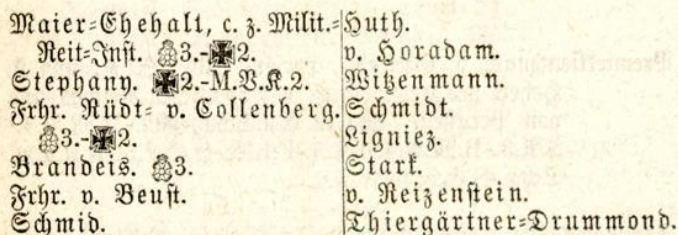 Maier-Ehehalt, c. z. Milit.-
Reit-Inst. 3.-2.
Stephany. 2.-M.V.K.2.
Frhr. Rüdt- v. Collenberg.
3.-2.
Brandeis. 3.
Frhr. v. Beust.
Schmid.
Huth.
v. Horadam.
Witzenmann.
Schmidt.
Ligniez.
Stark.
v. Reizenstein.
Thiergärtner-Drummond.